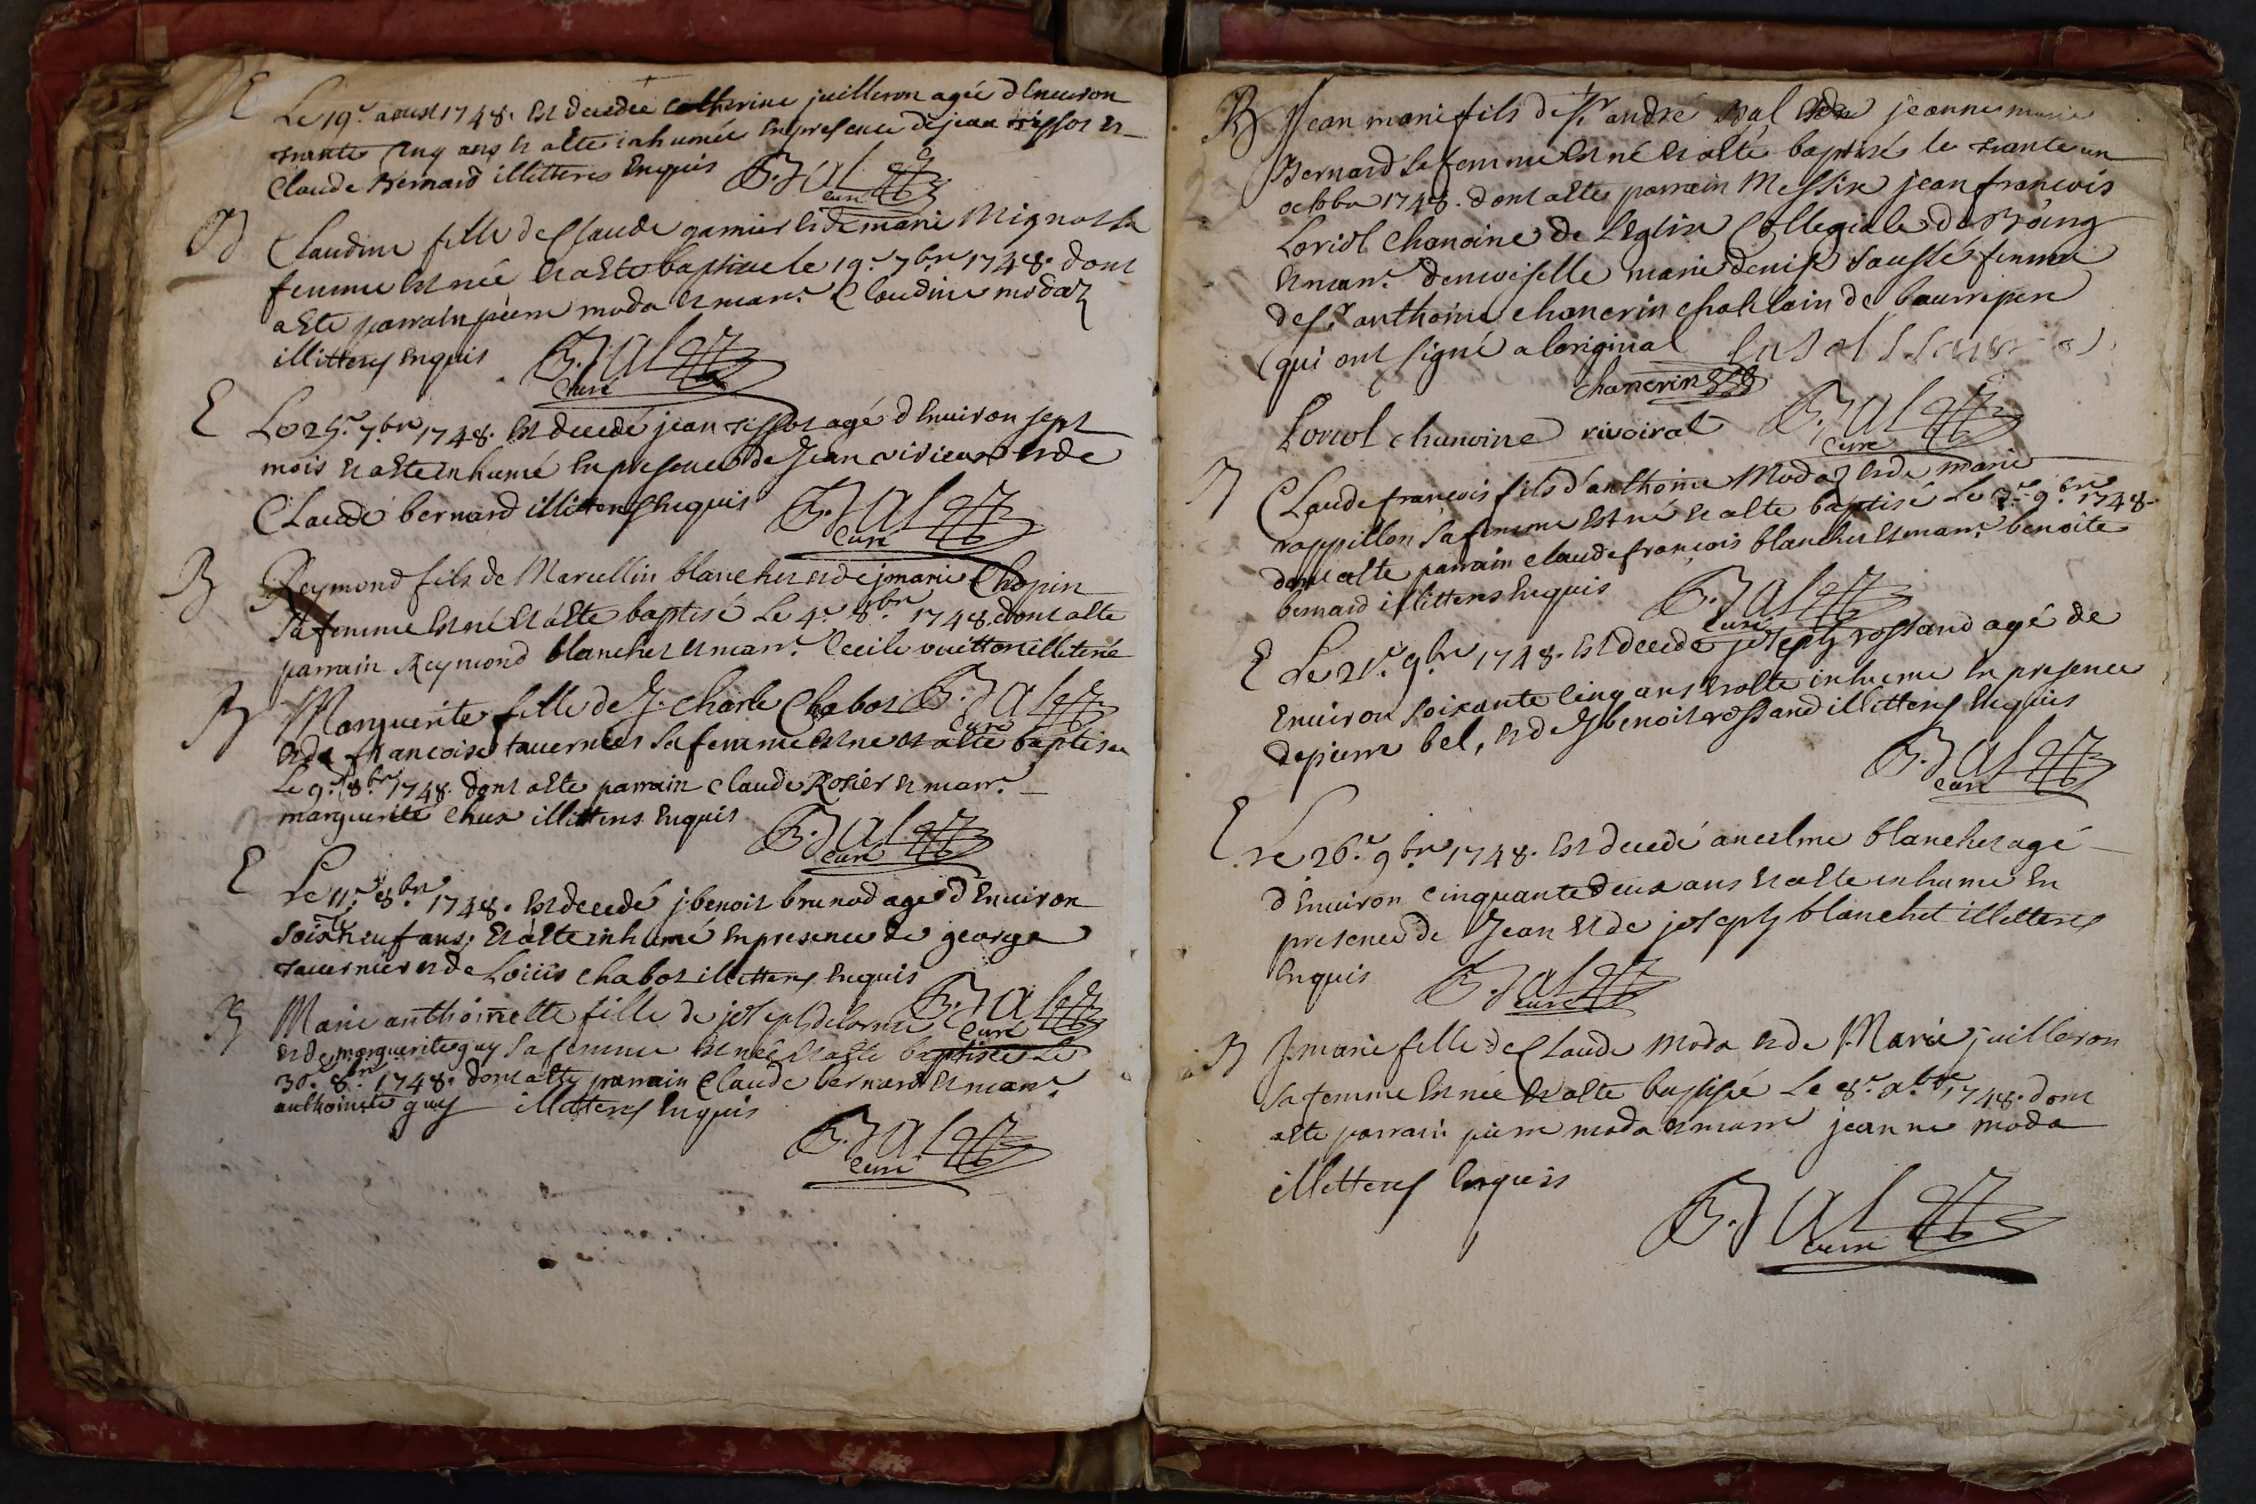 E
Le 19e aoust 1748. est decedée catherine juilleron agée d'environ
trante cinq ans et a esté inhumée en presence de jean tissot et
Claude Bernard illitteres enquis B. Jal
curé
B
Claudine fille de Claude garnier et de marie Mignot sa
femme est née et a esté baptisée le 19e 7bre 1748. dont
a esté parrain pierre moda et marr.e Claudine modaz
illitteres enquis B. Jal
Curé
E
Le 25e 7bre 1748. est decedé jean tissot agé d'environ sept
mois et a esté inhumé en presence de Jean et de
Claude bernard illitteres enquis B. Jal
Curé
B
Reymond fils de Marcellin blanchet et de jmarie Chopin
sa femme est né et a esté baptisé Le 4e 8bre 1748. dont a esté
parrain Reymond blanchet et marr.e Cecile illiteré
B. Jal
curé
B
Marguerite fille de J. Charle Chabot
et de françoise tavernier sa femme est née et a esté baptisée
Le 9e 8bre 1748. dont a esté parrain claude Rosier et marr.e
marguerite illitteres enquis B. Jal
curé
E
Le 11e 8bre 1748. est decedé j.benoit brunod agé d'environ
soixte neuf ans, et a esté inhumé en presence de george
tavernier et de Loüis chabot illitteres enquis
B. Jal
Curé
B
Marie anthoinette fille de joseph delorme
et de marguerite guy sa femme est née et a esté baptisée Le
30e 8bre 1748. dont a esté parrain Claude bernard et marr.e
anthoinete guy illitteres enquis B. Jal
curé
B
Jean marie fils de Sr andré Jal et de jeanne marie
Bernard sa femme est né et a esté baptisé le trante un
octobre 1748. dont a esté parrain Messire jean françois
Loriol Chanoine de L'Eglise Collegiale de
et marr.e demoiselle marie denise femme
de Sr anthoine chanerin chatelain de beaurepere
qui ont signé a l'original
chanerin
Loriol chanoine rivoirat B. Jal
curé
B
Claude françois fils d'anthoine Modaz et de marie
rappillon sa femme est né et a esté baptisé Le 9bre 1748.
dont a esté parrain claude françois blanchet et marr.e benoite
bernard illitteres enquis B. Jal
curé
E
Le 21e 9bre 1748. est decedé joseph rossand agé de
environ soixante cinq ans et a esté inhumé en presence
de pierre bel, et de J benoit rossand illitteres enquis
B. Jal
curé
E
Le 26e 9bre 1748. est decedé ancelme blanchet agé
d'environ cinquante deux ans et a esté inhumé en
presence de Jean et de joseph blanchet illitteres
enquis B. Jal
curé
B
J.marie fille de Claude moda et de J.Marie juilleron
sa femme est née et a esté baptisée Le 8e xbre 1748. dont
a esté parrain pierre moda et marr.e jeanne moda
illitteres enquis
B. Jal
curé